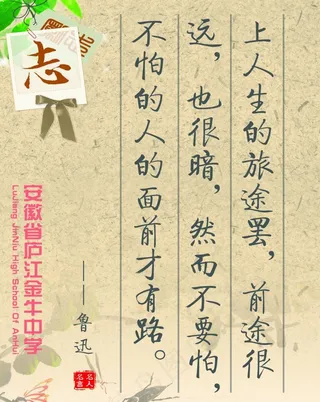 上人生的旅途罢，前途很
远，也很暗，然而不要怕，
不怕的人的面前才有路。
——鲁迅
志
安徽省庐江金牛中学
LuJiang JinNiu High School Of AnHui
名人
名言